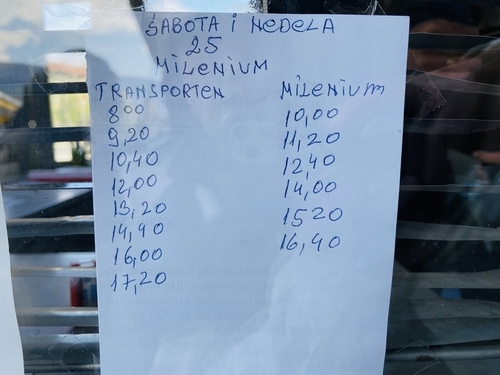 SABOTA i NEDELA
25
MiLENIUM
TRANSPORTEN MiLENIUM
8 00 10,00
9,20 11,20
10,40 12,40
12,00 14,00
13,20 1520
14,40 16,40
16,00
17,20